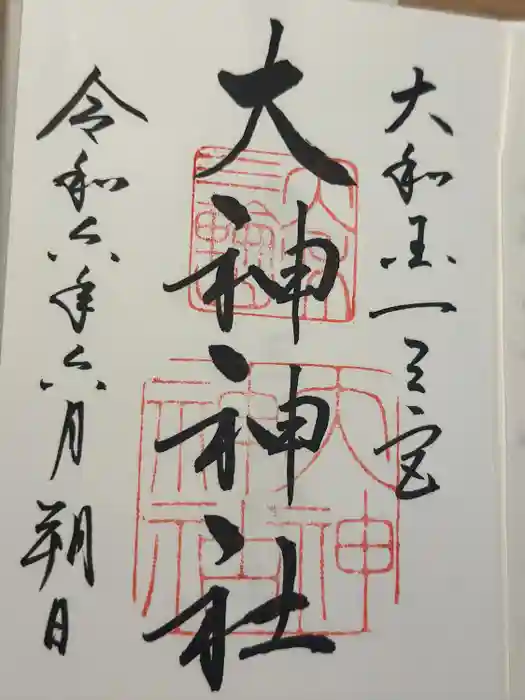 大和国一之宮
大神神社
令和六年六月朔日
三輪
大神
神社